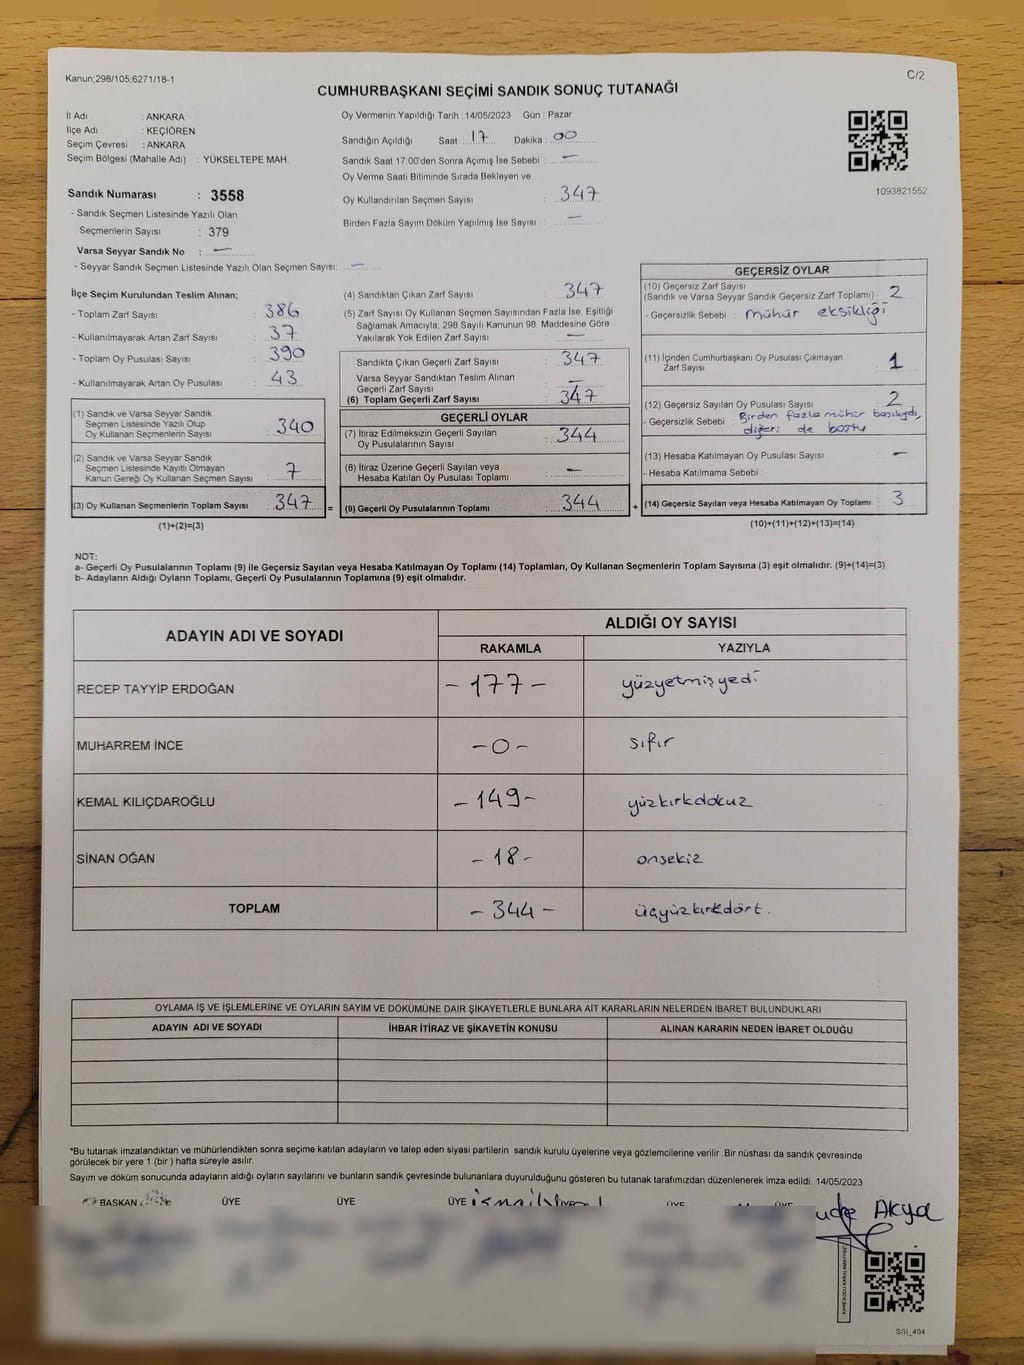 Kanun;298/105;6271/18-1
C/2
CUMHURBAŞKANI SEÇİMİ SANDIK SONUÇ TUTANAĞI
İl Adı : ANKARA
İlçe Adı : KEÇİÖREN
Seçim Çevresi : ANKARA
Seçim Bölgesi (Mahalle Adı) : YÜKSELTEPE MAH.
Sandık Numarası : 3558
- Sandık Seçmen Listesinde Yazılı Olan
Seçmenlerin Sayısı : 379
Varsa Seyyar Sandık No : —
- Seyyar Sandık Seçmen Listesinde Yazılı Olan Seçmen Sayısı: —
Oy Vermenin Yapıldığı Tarih : 14/05/2023 Gün : Pazar
Sandığın Açıldığı Saat : 17 Dakika : 00
Sandık Saat 17:00'den Sonra Açımış İse Sebebi : —
Oy Verme Saati Bitiminde Sırada Bekleyen ve
Oy Kullandırılan Seçmen Sayısı : 347
Birden Fazla Sayım Döküm Yapılmış İse Sayısı : —
1093821552
İlçe Seçim Kurulundan Teslim Alınan;
- Toplam Zarf Sayısı : 386
- Kullanılmayarak Artan Zarf Sayısı : 37
- Toplam Oy Pusulası Sayısı : 390
- Kullanılmayarak Artan Oy Pusulası : 43
(1) Sandık ve Varsa Seyyar Sandık
Seçmen Listesinde Yazılı Olup
Oy Kullanan Seçmenlerin Sayısı : 340
(2) Sandık ve Varsa Seyyar Sandık
Seçmen Listesinde Kayıtlı Olmayan
Kanun Gereği Oy Kullanan Seçmen Sayısı : 7
(3) Oy Kullanan Seçmenlerin Toplam Sayısı : 347 =
(1)+(2)=(3)
(4) Sandıktan Çıkan Zarf Sayısı : 347
(5) Zarf Sayısı Oy Kullanan Seçmen Sayısından Fazla İse, Eşitliği
Sağlamak Amacıyla, 298 Sayılı Kanunun 98. Maddesine Göre
Yakılarak Yok Edilen Zarf Sayısı : —
Sandıkta Çıkan Geçerli Zarf Sayısı : 347
Varsa Seyyar Sandıktan Teslim Alınan
Geçerli Zarf Sayısı : —
(6) Toplam Geçerli Zarf Sayısı : 347
GEÇERLİ OYLAR
(7) İtiraz Edilmeksizin Geçerli Sayılan
Oy Pusulalarının Sayısı : 344
(8) İtiraz Üzerine Geçerli Sayılan veya
Hesaba Katılan Oy Pusulası Toplamı : —
(9) Geçerli Oy Pusulalarının Toplamı : 344 +
GEÇERSİZ OYLAR
(10) Geçersiz Zarf Sayısı
(Sandık ve Varsa Seyyar Sandık Geçersiz Zarf Toplamı) : 2
- Geçersizlik Sebebi : mühür eksikliği
(11) İçinden Cumhurbaşkanı Oy Pusulası Çıkmayan
Zarf Sayısı : 1
(12) Geçersiz Sayılan Oy Pusulası Sayısı : 2
- Geçersizlik Sebebi : Birden fazla mühür basılıydı,
diğeri de boştu
(13) Hesaba Katılmayan Oy Pusulası Sayısı : —
- Hesaba Katılmama Sebebi :
(14) Geçersiz Sayılan veya Hesaba Katılmayan Oy Toplamı : 3
(10)+(11)+(12)+(13)=(14)
NOT:
a- Geçerli Oy Pusulalarının Toplamı (9) ile Geçersiz Sayılan veya Hesaba Katılmayan Oy Toplamı (14) Toplamları, Oy Kullanan Seçmenlerin Toplam Sayısına (3) eşit olmalıdır. (9)+(14)=(3)
b- Adayların Aldığı Oyların Toplamı, Geçerli Oy Pusulalarının Toplamına (9) eşit olmalıdır.
ADAYIN ADI VE SOYADI ALDIĞI OY SAYISI
RAKAMLA YAZIYLA
RECEP TAYYİP ERDOĞAN - 177 - yüzyetmişyedi
MUHARREM İNCE - 0 - sıfır
KEMAL KILIÇDAROĞLU - 149 - yüzkırkdokuz
SİNAN OĞAN - 18 - onsekiz
TOPLAM - 344 - üçyüzkırkdört.
OYLAMA İŞ VE İŞLEMLERİNE VE OYLARIN SAYIM VE DÖKÜMÜNE DAİR ŞİKAYETLERLE BUNLARA AİT KARARLARIN NELERDEN İBARET BULUNDUKLARI
ADAYIN ADI VE SOYADI İHBAR İTİRAZ VE ŞİKAYETİN KONUSU ALINAN KARARIN NEDEN İBARET OLDUĞU
*Bu tutanak imzalandıktan ve mühürlendikten sonra seçime katılan adayların ve talep eden siyasi partilerin sandık kurulu üyelerine veya gözlemcilerine verilir .Bir nüshası da sandık çevresinde
görülecek bir yere 1 (bir ) hafta süreyle asılır.
Sayım ve döküm sonucunda adayların aldığı oyların sayılarını ve bunların sandık çevresinde bulunanlara duyurulduğunu gösteren bu tutanak tarafımızdan düzenlenerek imza edildi. 14/05/2023
BAŞKAN ÜYE ÜYE ÜYE ÜYE ÜYE
Akya
KARE KODU KARALAMAYINIZ!
SSI_404